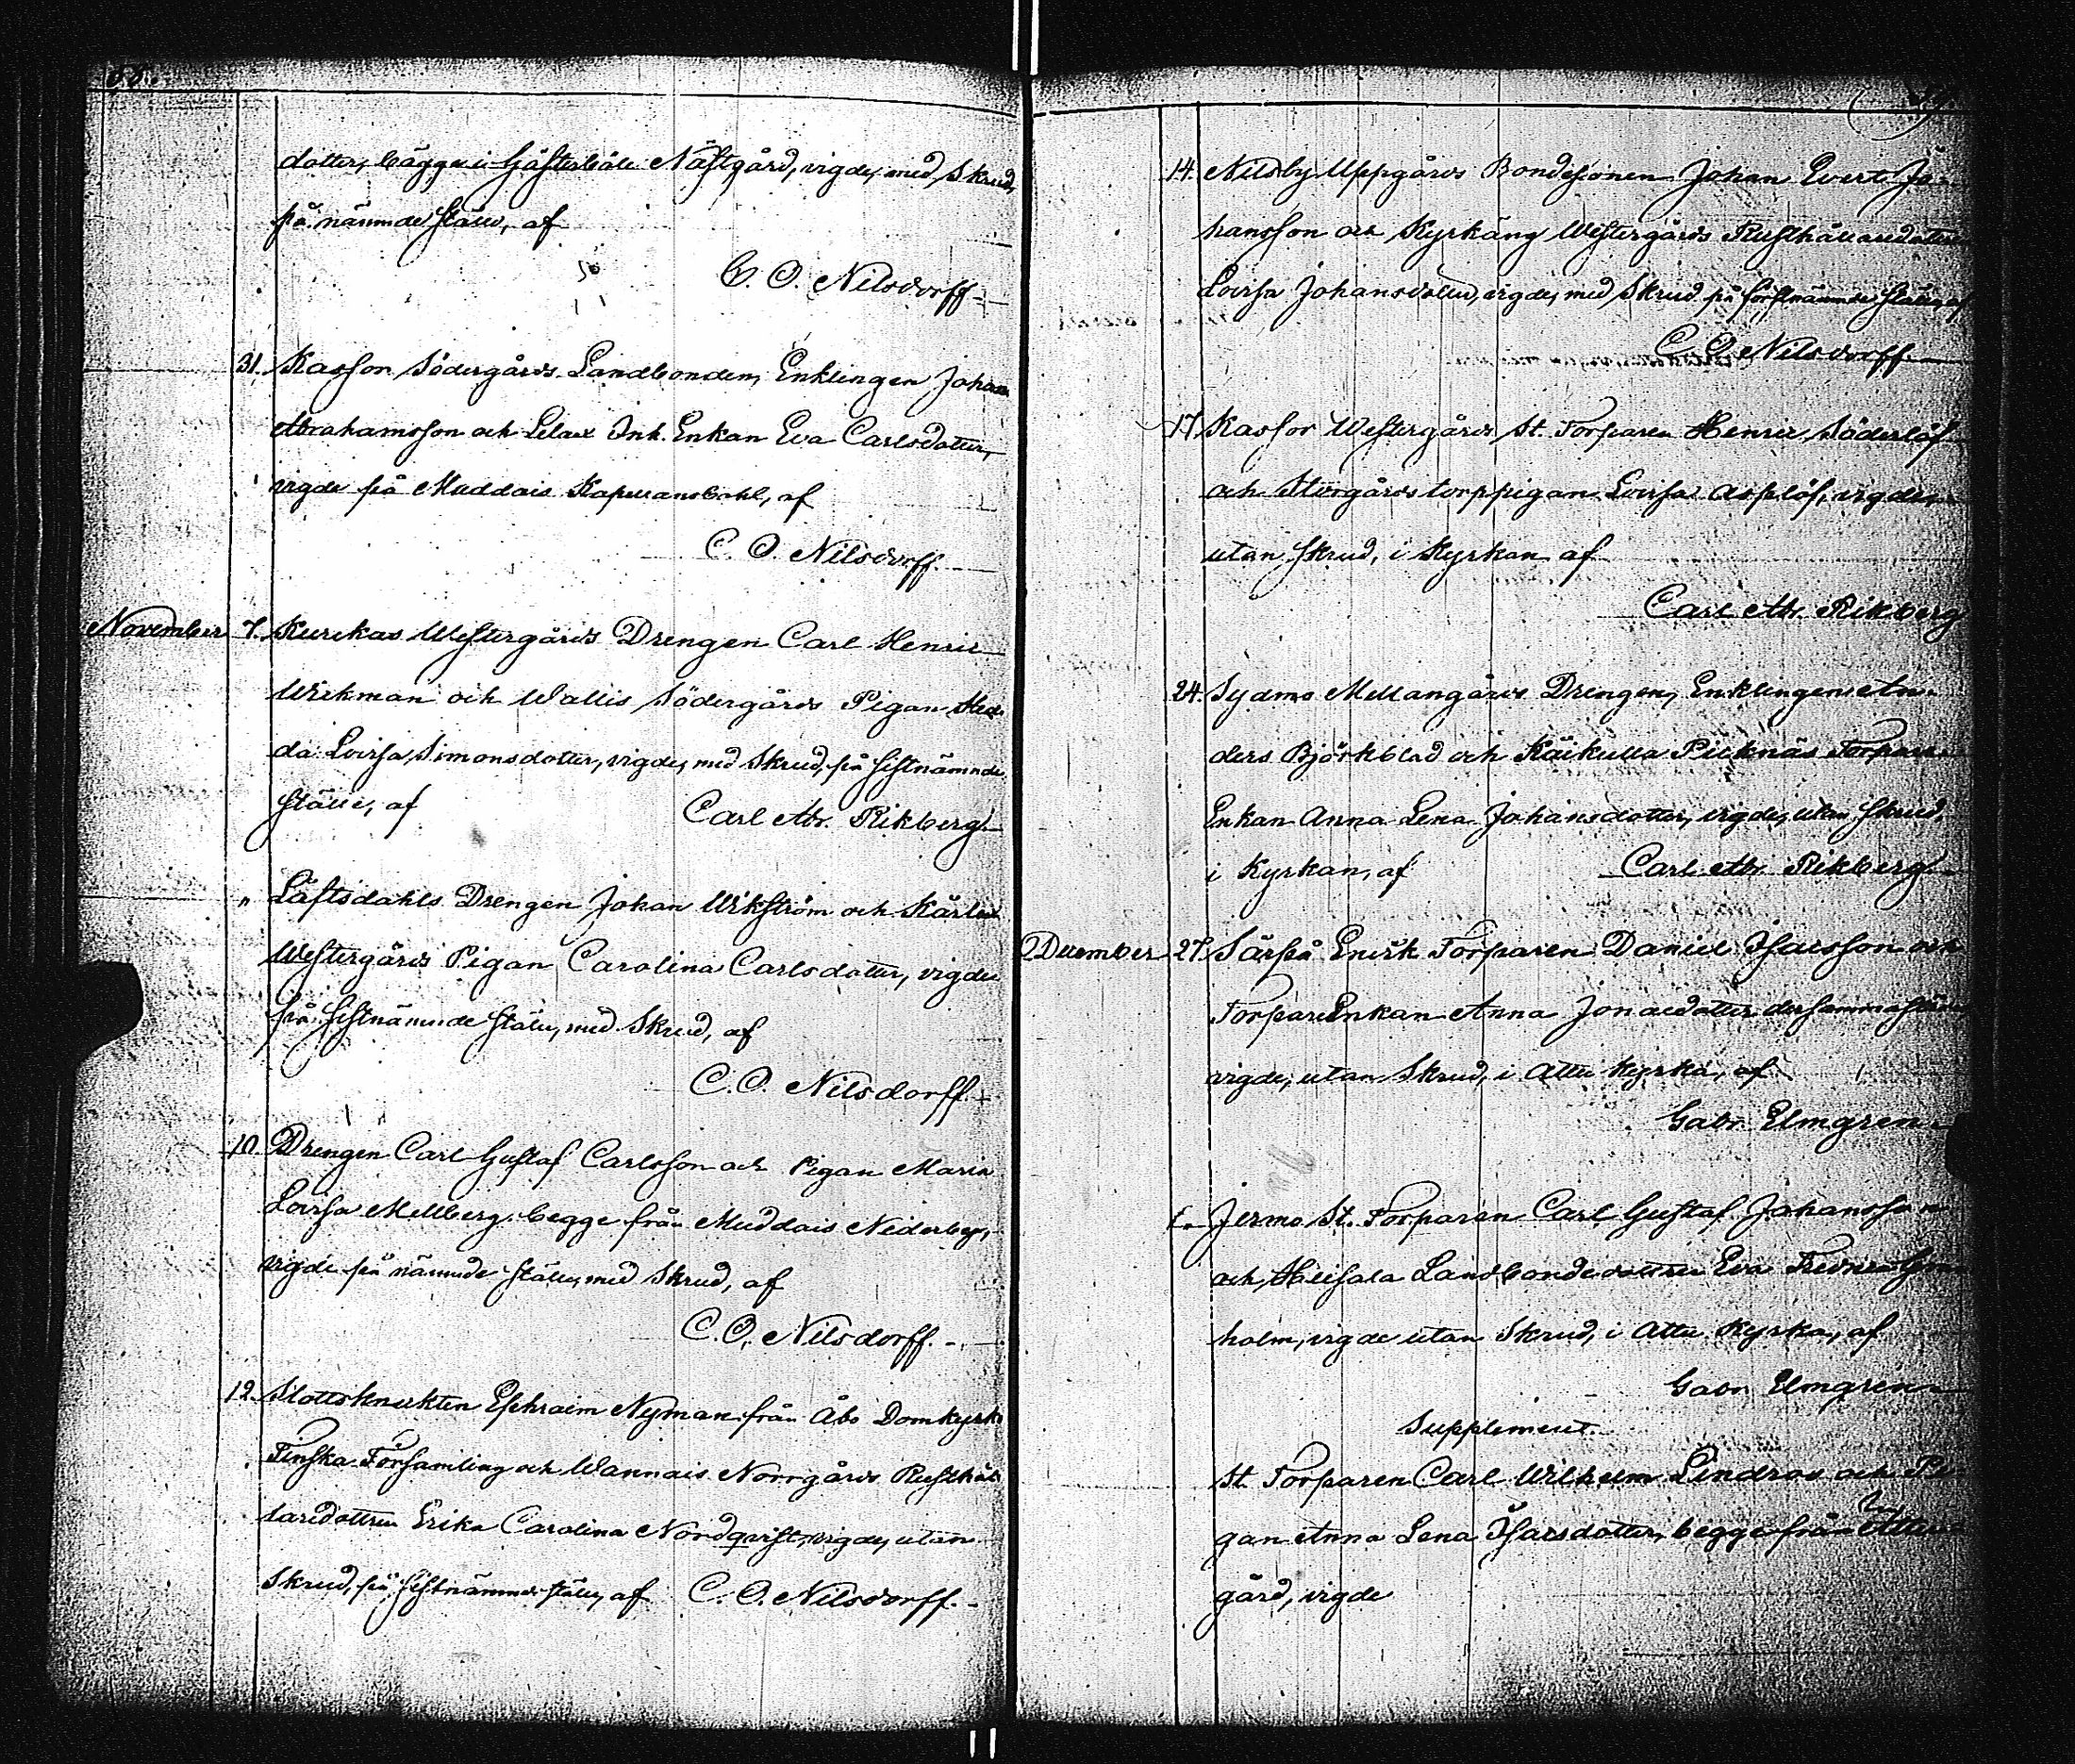 dotter, bägge i Gästerbäle Nästgård, vigde, med Skrud,
på nämnde ställe, af
C. O. Nilsdorff.
31. Kassor Södergårds Landbonden, Enklingen Johan
Abrahamsson och Lelax Inh. Enkan Eva Carlsdotter,
vigde på Muddais Kapellansbohl, af
C. O. Nilsdorff.
November 7. Kurckas Westergårds Drengen Carl Henric
Wickman och Wallis Södergårds Pigan Hed-
da Lovisa Simonsdotter, vigde, med Skrud, på sistnämnde
ställe, af Carl Abr. Rikberg
" Låftsdahls Drengen Johan Wikström och Kärlax
Westergårds Pigan Carolina Carlsdotter, vigde
på sistnämnde ställe, med Skrud, af
C. O. Nilsdorff.
10. Drengen Carl Gustaf Carlsson och Pigan Maria
Lovisa Mellberg begge från Muddais Nederby,
vigde på nämnde ställe, med Skrud, af
C. O. Nilsdorff.
12. Slottsknekten Ephraim Nyman från Åbo Domkyrko
Finska Församling och Wannais Norrgårds Rusthål-
laredottren Erika Carolina Nordqvist, vigde, utan
Skrud, på sistnämnde ställe, af C. O. Nilsdorff.
14. Nilsby Uppgårds Bondesonen Johan Evert Jo-
hansson och Kyrkäng Westergårds Rusthållaredottren
Lovisa Johansdotter, vigde, med Skrud på förstnämnde ställe, af
C. O. Nilsdorff.
17. Kassor Westergårds St. Torparen Henric Söderlöf
och Storgårds torppigan Lovisa Asplöf, vigde,
utan Skrud, i Kyrkan af
Carl Abr. Rikberg
24. Sydmo Mellangårds Drengen, Enklingen An-
ders Björkblad och Käikulla Pilknäs Torpare
Enkan Anna Lena Johansdotter, vigde, utan Skrud,
i Kyrkan, af Carl Abr. Rikberg
December 27. Särpå Torparen Daniel Isacsson och
TorpareEnkan Anna Jonaedotter dersammastädes
vigde, utan Skrud, i Attu Kyrka, af
Gabr. Elmgren
Jermo St. Torparen Carl Gustaf Johansson
och Heisala Landbondedottren Eva
holm, vigde utan Skrud, i Attu Kyrka, af
Gabr. Elmgren
Supplement.
St. Torparen Carl Wilhelm Lindros och Pi-
gan Anna Lena Isacsdotter, begge från Attu
gård, vigde